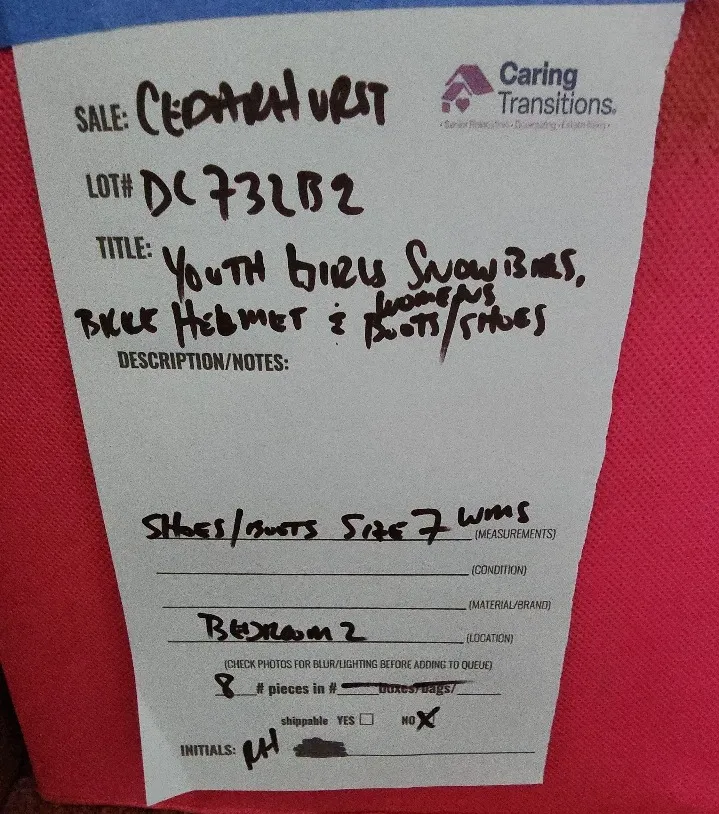 Caring
Transitions.
SALE: CEDARHURST
LOT# DC732B2
TITLE: YOUTH GIRLS SNOW BIBS,
BIKE HELMET & WOMENS BOOTS/SHOES
DESCRIPTION/NOTES:
SHOES/BOOTS SIZE 7 WMS (MEASUREMENTS)
(CONDITION)
(MATERIAL/BRAND)
BEDROOM 2 (LOCATION)
(CHECK PHOTOS FOR BLUR/LIGHTING BEFORE ADDING TO QUEUE)
8 # pieces in # boxes/bags/
shippable YES ☐ NO X
INITIALS: RH